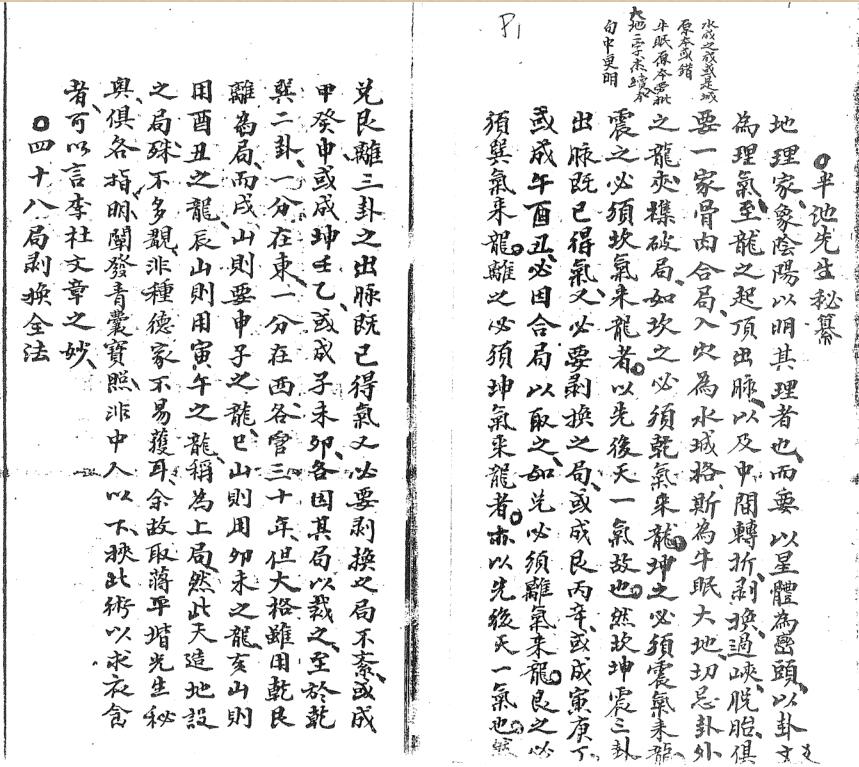 P1
水成之成或是城
原本或錯
牛眠原本要批
大地二字未續者
句中更明
○半池先生秘纂
地理家象陰陽以明其理者也、而要以星體為巒頭、以卦爻
為理氣、至龍之起頂出脉、以及中間轉折、剥換、過峽、脫胎、俱
要一家骨肉合局、入穴為水城格、斯為牛眠大地、切忌卦外
之龍夾襍破局、如坎之必須乾氣來龍、坤之必須震氣來龍
震之必須坎氣來龍者、以先後天一氣故也、然坎坤震三卦
出脉既已得氣、又必要剥換之局、或成艮丙辛、或成寅庚丁
或成午酉丑、必因合局以取之、如兌必須離氣來龍、艮之必
須巽氣來龍、離之必須坤氣來龍者、亦以先後天一氣也、然
兌艮離三卦之出脉既已得氣、又必要剥換之局不紊、或成
甲癸申、或成坤壬乙、或成子未卯、各因其局以裁之、至於乾
巽二卦、一分在東、一分在西、各管三十年、但大格雖用乾艮
離為局、而戌山則要申子之龍、巳山則用卯未之龍、亥山則
用酉丑之龍、辰山則用寅午之龍、稱為上局、然此天造地設
之局、殊不多覩、非種德家不易獲耳、余故取蔣平堦先生秘
奧、俱各指明、闡發青囊寶照、非中人以下、挾此術以求衣食
者、可以言李杜文章之妙、
○四十八局剥換全法